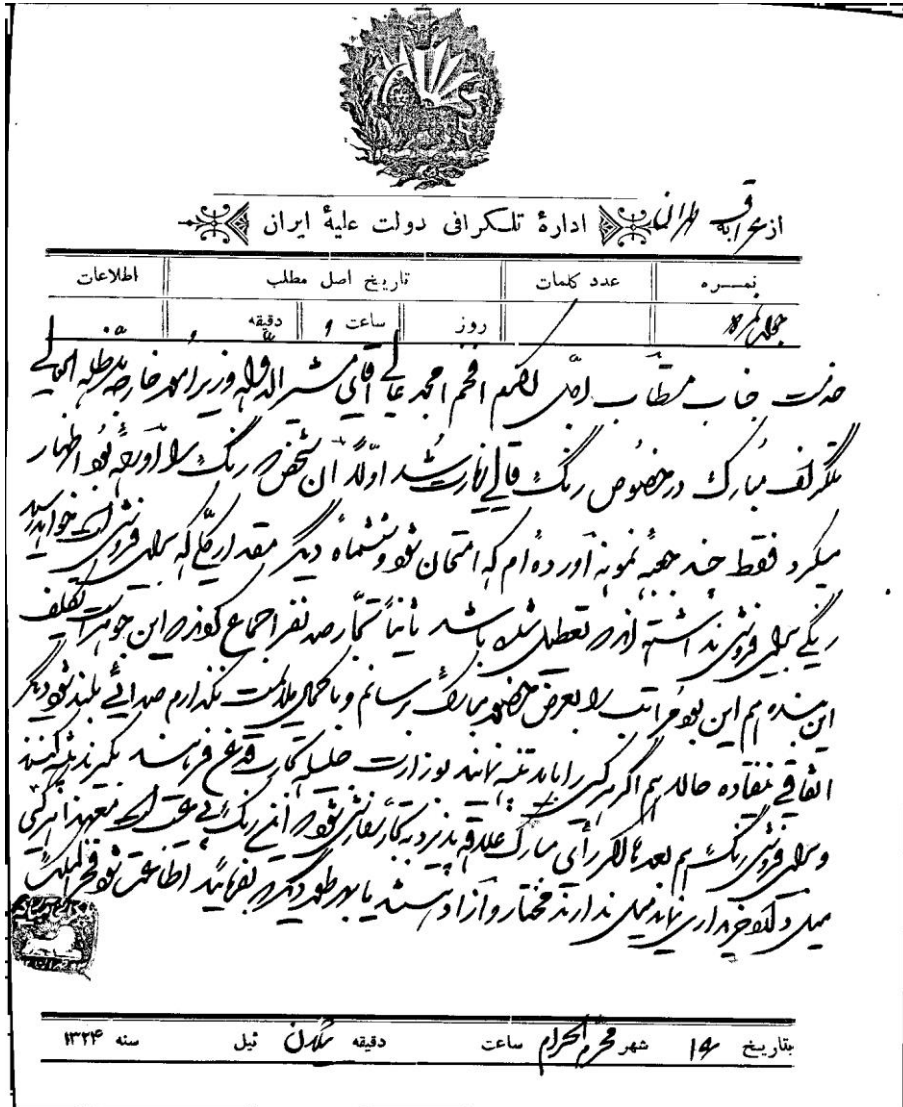 از عراق به طهران
ادارهٔ تلگرافی دولت علیهٔ ایران
نمره عدد کلمات تاریخ اصل مطلب اطلاعات
روز ساعت دقیقه
جناب مستطاب اجل اکرم افخم امجد عالی آقای مشیرالدوله وزیر امور خارجه مدظله العالی
تلگراف مبارک در خصوص رنگ قالی زیارت شد اولاً آن شخص که رنگ را آورده بود اظهار
میکرد فقط چند جعبه نمونه آورده‌ام که امتحان شود و ششماه دیگر مقدار کلی که برای فروش است خواهد رسید
رنگی برای فروش نداشته‌اند که تعطیل شده باشد ثانیاً تجار صد نفر اجماع کردند که این جوهر است تکلیف
این بنده هم این بود مراتب را بعرض حضور مبارک برسانم و با کمال ملایمت نگذارم صدائی بلند شود دیگر
اتفاقی نیفتاده حالا هم اگر هر کس را باید تنبیه نمایند بوزارت جلیله تجارت قدغن فرمایند
و برای فروش رنگ هم بعدها اگر رأی مبارک علاقه پذیرد به تجار سفارش شود که این رنگ بی عیب است معهذا هر کس
میل دارد خریداری نماید میل ندارند مختار و آزاد هستند یا بهر طور دیگر که بفرمایند اطاعت شود فخرالملک
بتاریخ ۱۴ شهر محرم الحرام ساعت دقیقه ئیل سنه ۱۳۲۴